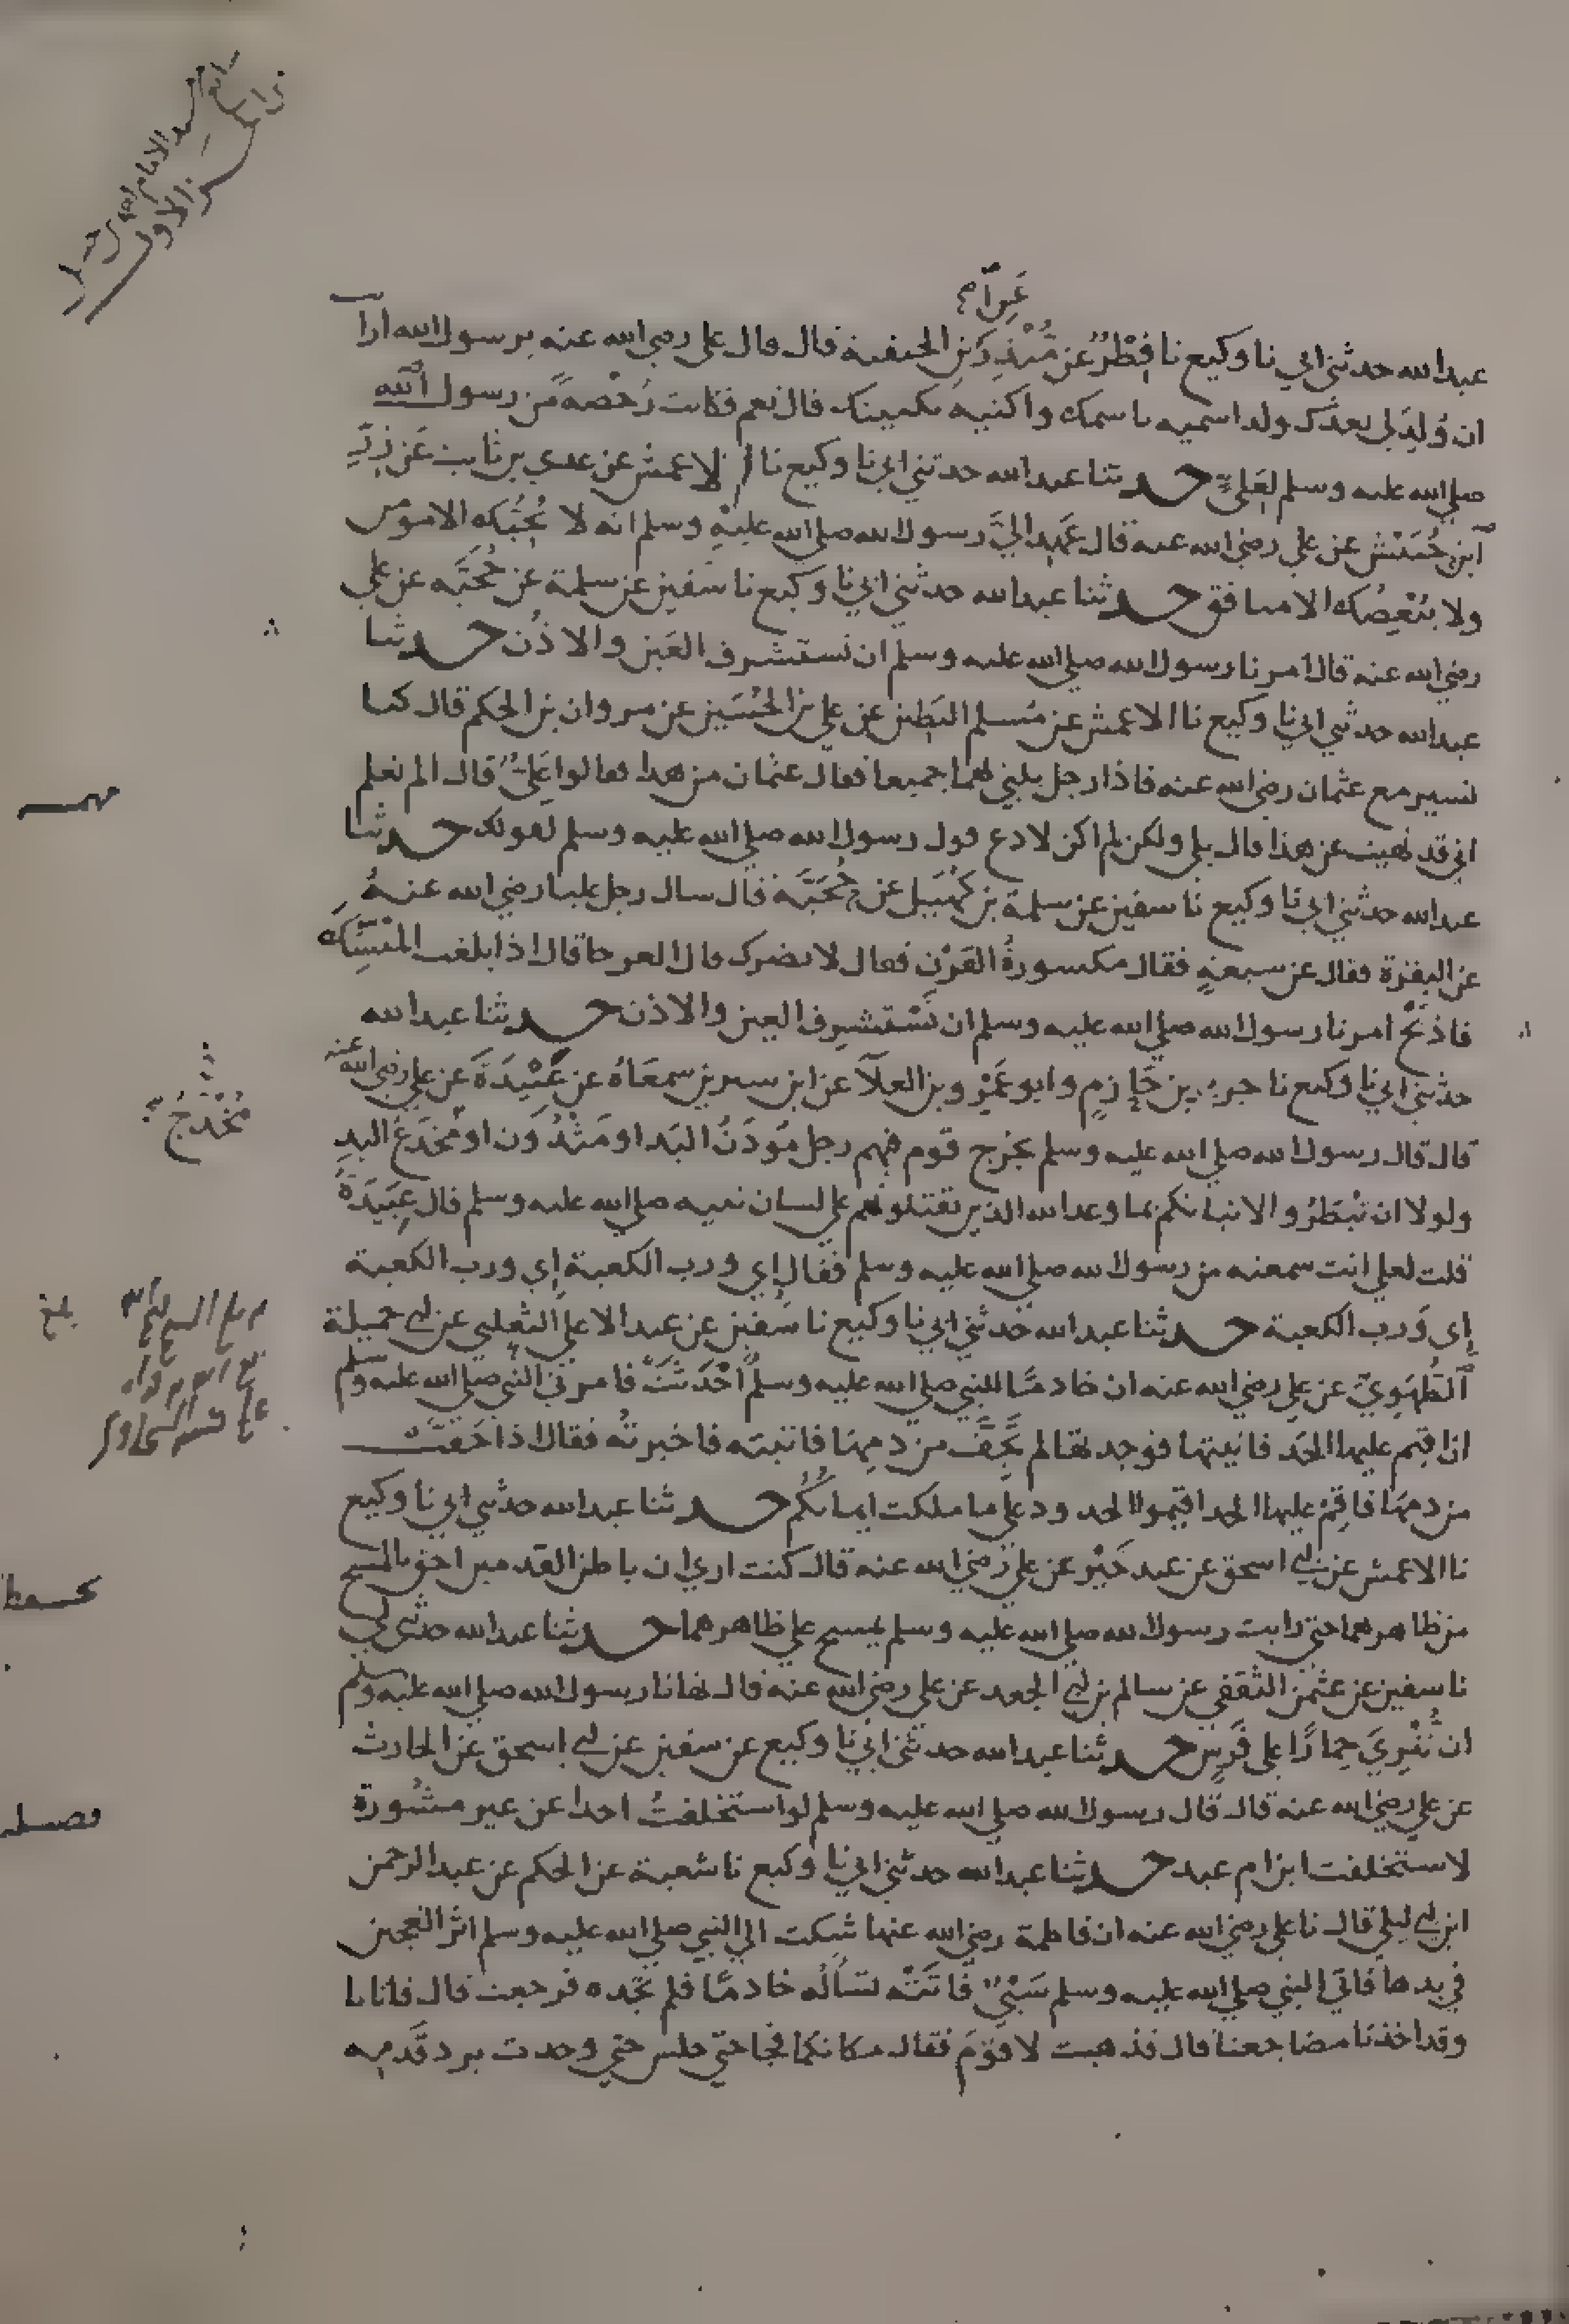 عبدالله حدثني ابي نا وكيع نا فِطْرٌ عن مُنْذِر عَنِ ابن الحنفية قال قال علي رضي الله عنه يرسول الله ارايت
ان وُلِدَ لي بعدك ولد اسميه باسمك واكنيه بكنيتك قال نعم فكانت رُخْصةً من رسول الله
صلي الله عليه وسلم لِعَليٍّ حدثنا عبدالله حدثني ابي نا وكيع نا الاعمش عن عدي بن ثابت عَن زِرِّ
ابن حُبَيْش عن علي رضي الله عنه قال عَهِدَ اليَّ رسول الله صلي الله عليهِ وسلم انه لا يُحِبُّك الا مومن
ولا يُبْغِضُك الا منافق حدثنا عبدالله حدثني ابي نا وكيع نا سفين عن سلمة عن حُجَيَّه عن علي
رضي الله عنه قال امرنا رسول الله صلي الله عليه وسلم ان نستشرف العَين والاذُن حدثنا
عبدالله حدثني ابي نا وكيع نا الاعمش عن مُسلم البَطِين عن علي بن الحُسَين عن مروان بن الحكم قال كنا
نسير مع عثمان رضي الله عنه فاذا رجل يلبي بهما جميعا فقال عثمان من هذا فقالوا عَليٌّ قال الم تعلم
اني قد نهيت عن هذا قال بلي ولكن لم اكن لادع قول رسول الله صلي الله عليه وسلم لقولك حدثنا
عبدالله حدثني ابي نا وكيع نا سفين عن سلمة بن كُهَيل عن حُجَيَّة قال سال رجل عليا رضي الله عنهُ
عن البقرة فقال عن سبعةٍ فقال مكسورةُ القَرْن فقال لا يضرك قال العرجا قال اذا بلغت المَنْسِكَ
فاذبَحْ امرنا رسول الله صلي الله عليه وسلم ان نَسْتشرِف العين والاذن حدثنا عبدالله
حدثني ابي نا وكيع نا جرير بن حَازمٍ وابو عَمْرو بن العلآ عن ابن سيرين سمعَاهُ عن عَبِيْدَةَ عن علي رضي الله عنه
قال قال رسول الله صلي الله عليه وسلم يخرج قوم فيهم رجل مُودَنُ اليَد او مَثْدُون او مُخْدَجُ اليد
ولولا ان تَبْطَرُوا لانباتكم بما وعد الله الذين يقتلونهم علي لسان نبيه صلي الله عليه وسلم قال عَبِيْدَةُ
قلت لعلي انت سمعته من رسول الله صلي الله عليه وسلم فقال اِي ورب الكعبة اِي ورب الكعبة
اِي وَرب الكعبة حدثنا عبدالله حدثني ابي نا وكيع نا سُفين عن عبد الاعلي الثعلبي عن ابي جميلة
الطُّهَوِيّ عن علي رضي الله عنه ان خادمًا للنبي صلي الله عليه وسلم اَحْدَثَتْ فامرني النبي صلي الله عليه وسلم
ان اقيم عليها الحَد فاتيتها فوجدتها لم تَجِفَّ من دمِها فاتيته فاخبرتُه فقال اذا جَفَّتْ
من دمِهَا فاقِمْ عليها الحد اقيموا الحدود علي ما ملكت ايمانكُمْ حدثنا عبدالله حدثني ابي نا وكيع
نا الاعمش عن ابي اسحق عن عبد خَيْر عن علي رضي الله عنه قال كنت اري ان باطن القدمين احق بالمسح
من ظاهرهما حتي رايت رسول الله صلي الله عليه وسلم يمسح علي ظاهرهما حدثنا عبدالله حدثني ابي
نا سفين عن عثمن الثقفي عن سالم بن ابي الجعد عن علي رضي الله عنه قال نهانا رسول الله صلي الله عليه وسلم
ان نُنْزِيَ حِمارًا علي فَرسٍ حدثنا عبدالله حدثني ابي نا وكيع عن سفين عن ابي اسحق عن الحارث
عن علي رضي الله عنه قال قال رسول الله صلي الله عليه وسلم لو استخلفتُ احدا عن غير مشُورة
لاستخلفت ابن ام عبد حدثنا عبدالله حدثني ابي نا وكيع نا شعبة عن الحكم عن عبد الرحمن
ابن ابي ليلي قال نا علي رضي الله عنه ان فاطمة رضي الله عنها شكت الي النبي صلي الله عليه وسلم اثر العجين
في يدها فاتي النبي صلي الله عليه وسلم سَبْيٌ فَاتَتْه تسْاَلُه خادمًا فلم تَجده فرجعت قال فاتانا
وقد اخذنا مضاجعنا قال فذهبت لاقومَ فقال مكانكما فجا حتي جلس حتي وجدت برد قَدميه
مُخْدَجُ
بلغ